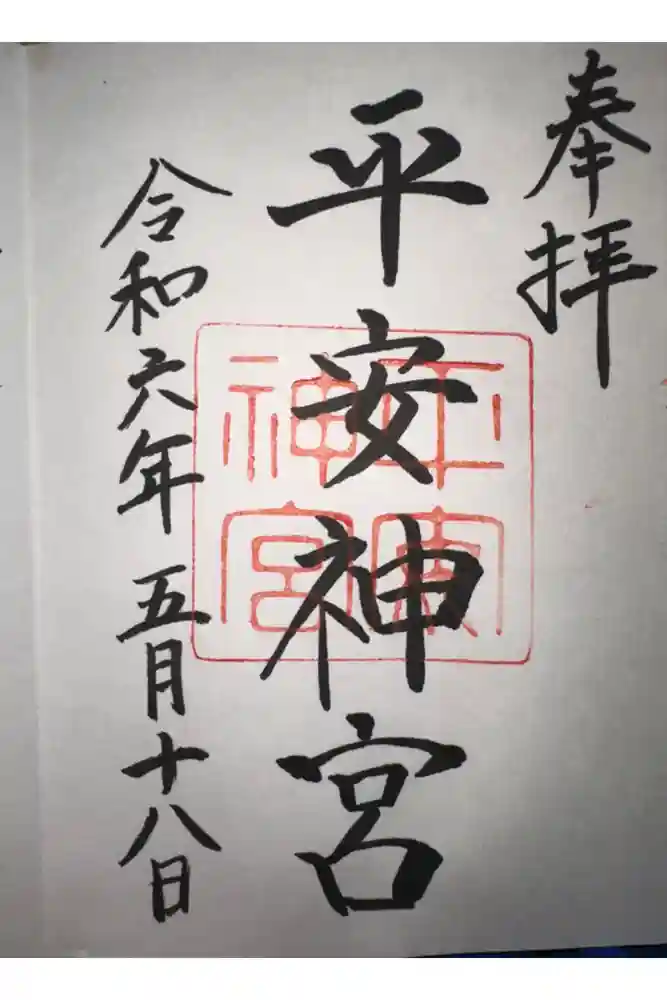 奉拝
平安神宮
平安
神宮
令和六年五月十八日